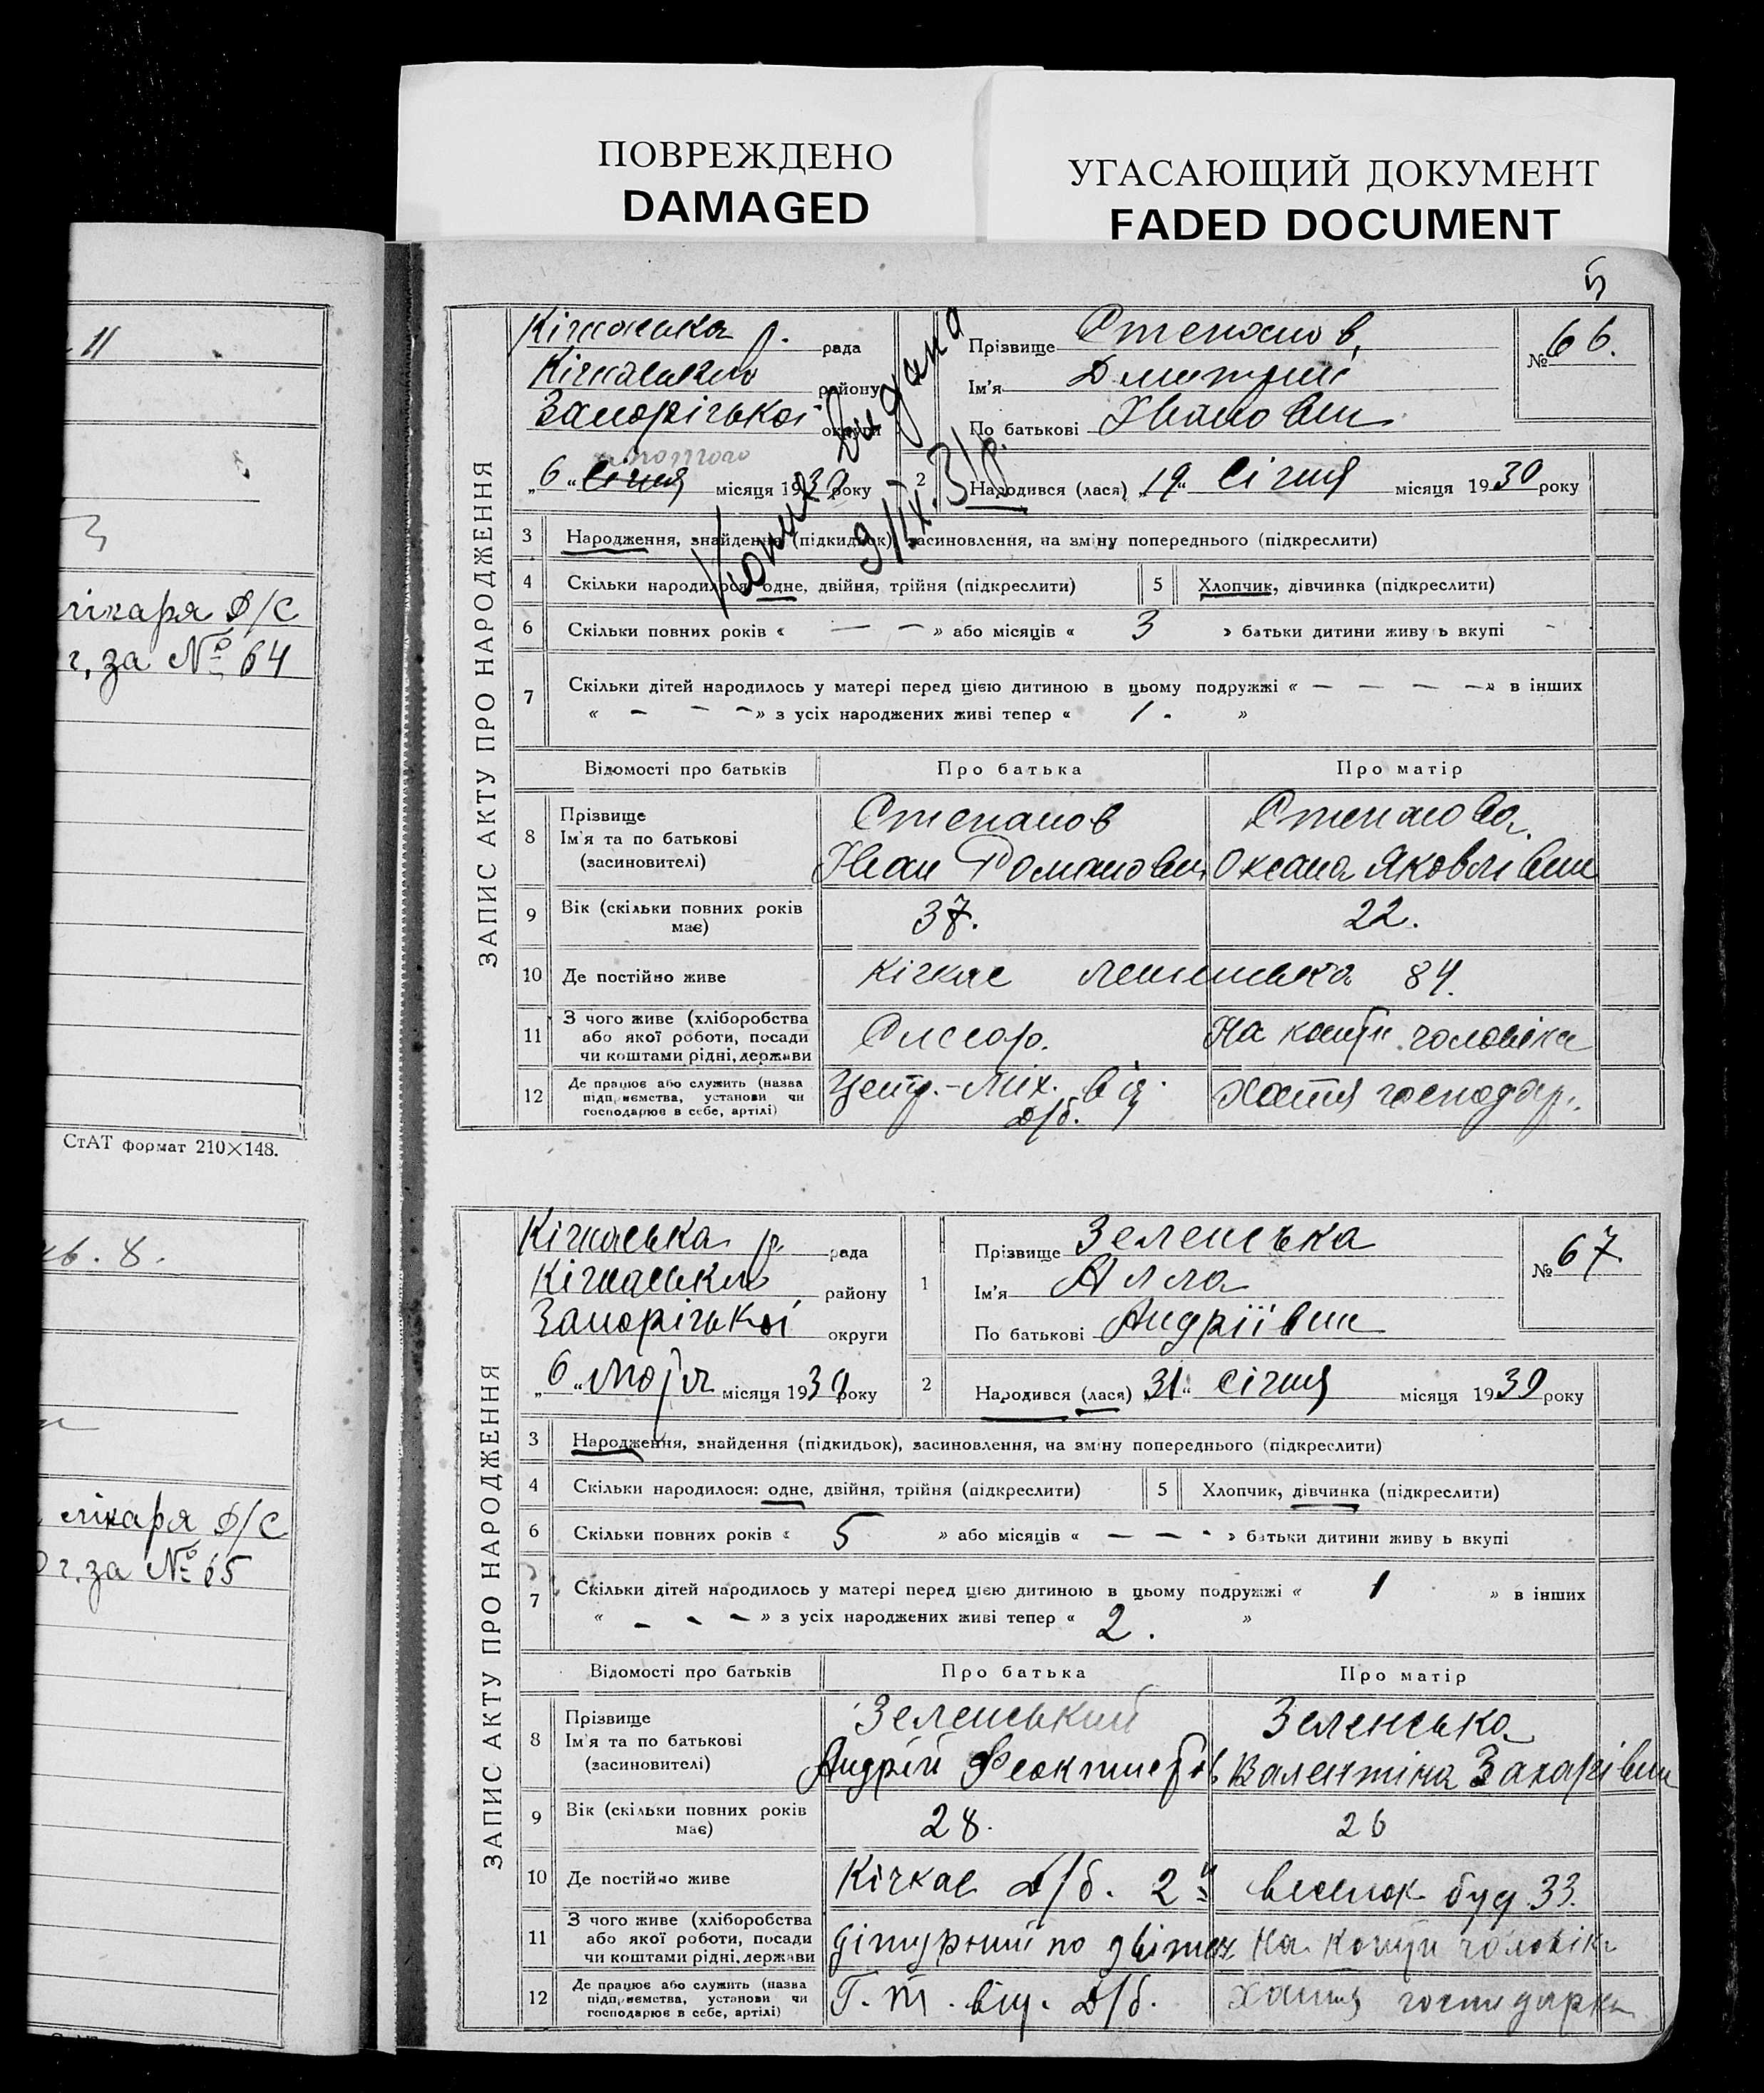 ПОВРЕЖДЕНО
DAMAGED
УГАСАЮЩИЙ ДОКУМЕНТ
FADED DOCUMENT
11
лікаря Д/С
г. за № 64
СтАТ формат 210×148.
кв. 8.
лікаря Д/С
г. за № 65
5
ЗАПИС АКТУ ПРО НАРОДЖЕННЯ
Кічкаська р. рада
Кічкаського району
Запорізької округи
лютого
„6“ січня місяця 1930 року
Копія видана
9/IX.31р.
Прізвище Степанов
Ім'я Дмитрий
По батькові Іванович
№ 66.
2 Народився (лася) „19“ Січня місяця 1930 року
3 Народження, знайдення (підкидьок), засиновлення, на зміну попереднього (підкреслити)
4 Скільки народилося: одне, двійня, трійня (підкреслити) 5 Хлопчик, дівчинка (підкреслити)
6 Скільки повних років « — — » або місяців « 3 » батьки дитини живу ь вкупі
7 Скільки дітей народилось у матері перед цією дитиною в цьому подружжі « — — — — » в інших
« — — — » з усіх народжених живі тепер « 1. »
Відомості про батьків Про батька Про матір
8 Прізвище Ім'я та по батькові (засиновителі) Степанов Степанова
Іван Романович Оксана Яковлівна
9 Вік (скільки повних років має) 37. 22.
10 Де постійно живе Кічкас Ленінська 84.
11 З чого живе (хліборобства або якої роботи, посади чи коштами рідні, держави Слесар. На кошти чоловіка
12 Де працює або служить (назва підприємства, установи чи господарює в себе, артілі) Центр.-Мех. від. Д/б. Хатня господар.
ЗАПИС АКТУ ПРО НАРОДЖЕННЯ
Кічкаська р. рада
Кічкаського району
Запорізької округи
„6“ лютого місяця 1930 року
1 Прізвище Зеленська
Ім'я Алла
По батькові Андріївна
№ 67
2 Народився (лася) „31“ січня місяця 1930 року
3 Народження, знайдення (підкидьок), засиновлення, на зміну попереднього (підкреслити)
4 Скільки народилося: одне, двійня, трійня (підкреслити) 5 Хлопчик, дівчинка (підкреслити)
6 Скільки повних років « 5 » або місяців « — — — » батьки дитини живу ь вкупі
7 Скільки дітей народилось у матері перед цією дитиною в цьому подружжі « 1 » в інших
« — — — » з усіх народжених живі тепер « 2. »
Відомості про батьків Про батька Про матір
8 Прізвище Ім'я та по батькові (засиновителі) Зеленський Зеленська
Андрій Феоктистов. Валентіна Захарівна
9 Вік (скільки повних років має) 28. 26
10 Де постійно живе Кічкас Д/б. 2й виселок буд. 33.
11 З чого живе (хліборобства або якої роботи, посади чи коштами рідні, держави по На кошти чоловіка
12 Де працює або служить (назва підприємства, установи чи господарює в себе, артілі) Г. т. від. Д/б. Хатня господарка